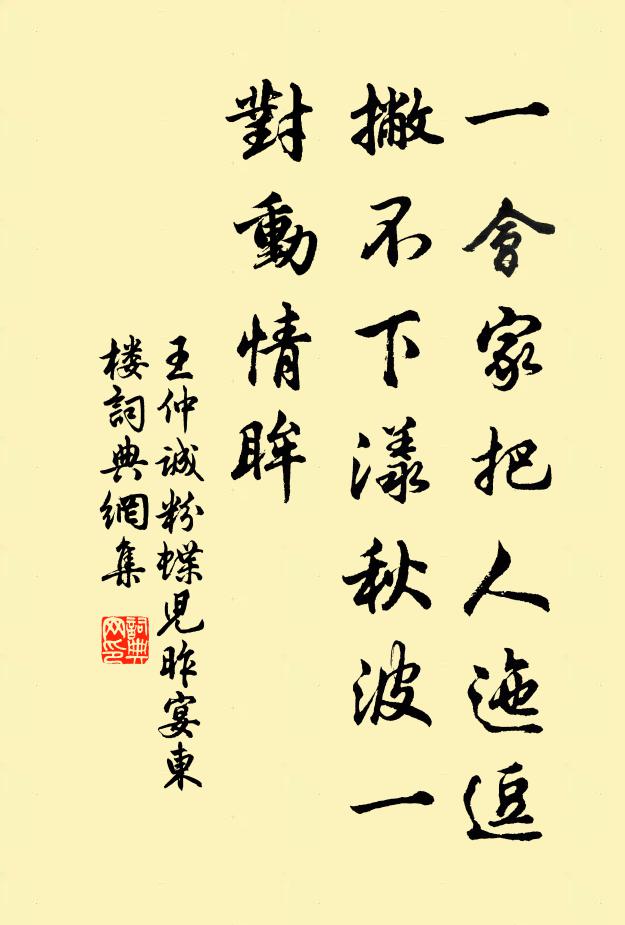 一會家把人迤逗
撇不下漾秋波一
對動情眸
王仲诚粉蝶兒昨宴東
楼詞典網集
詞典
网印